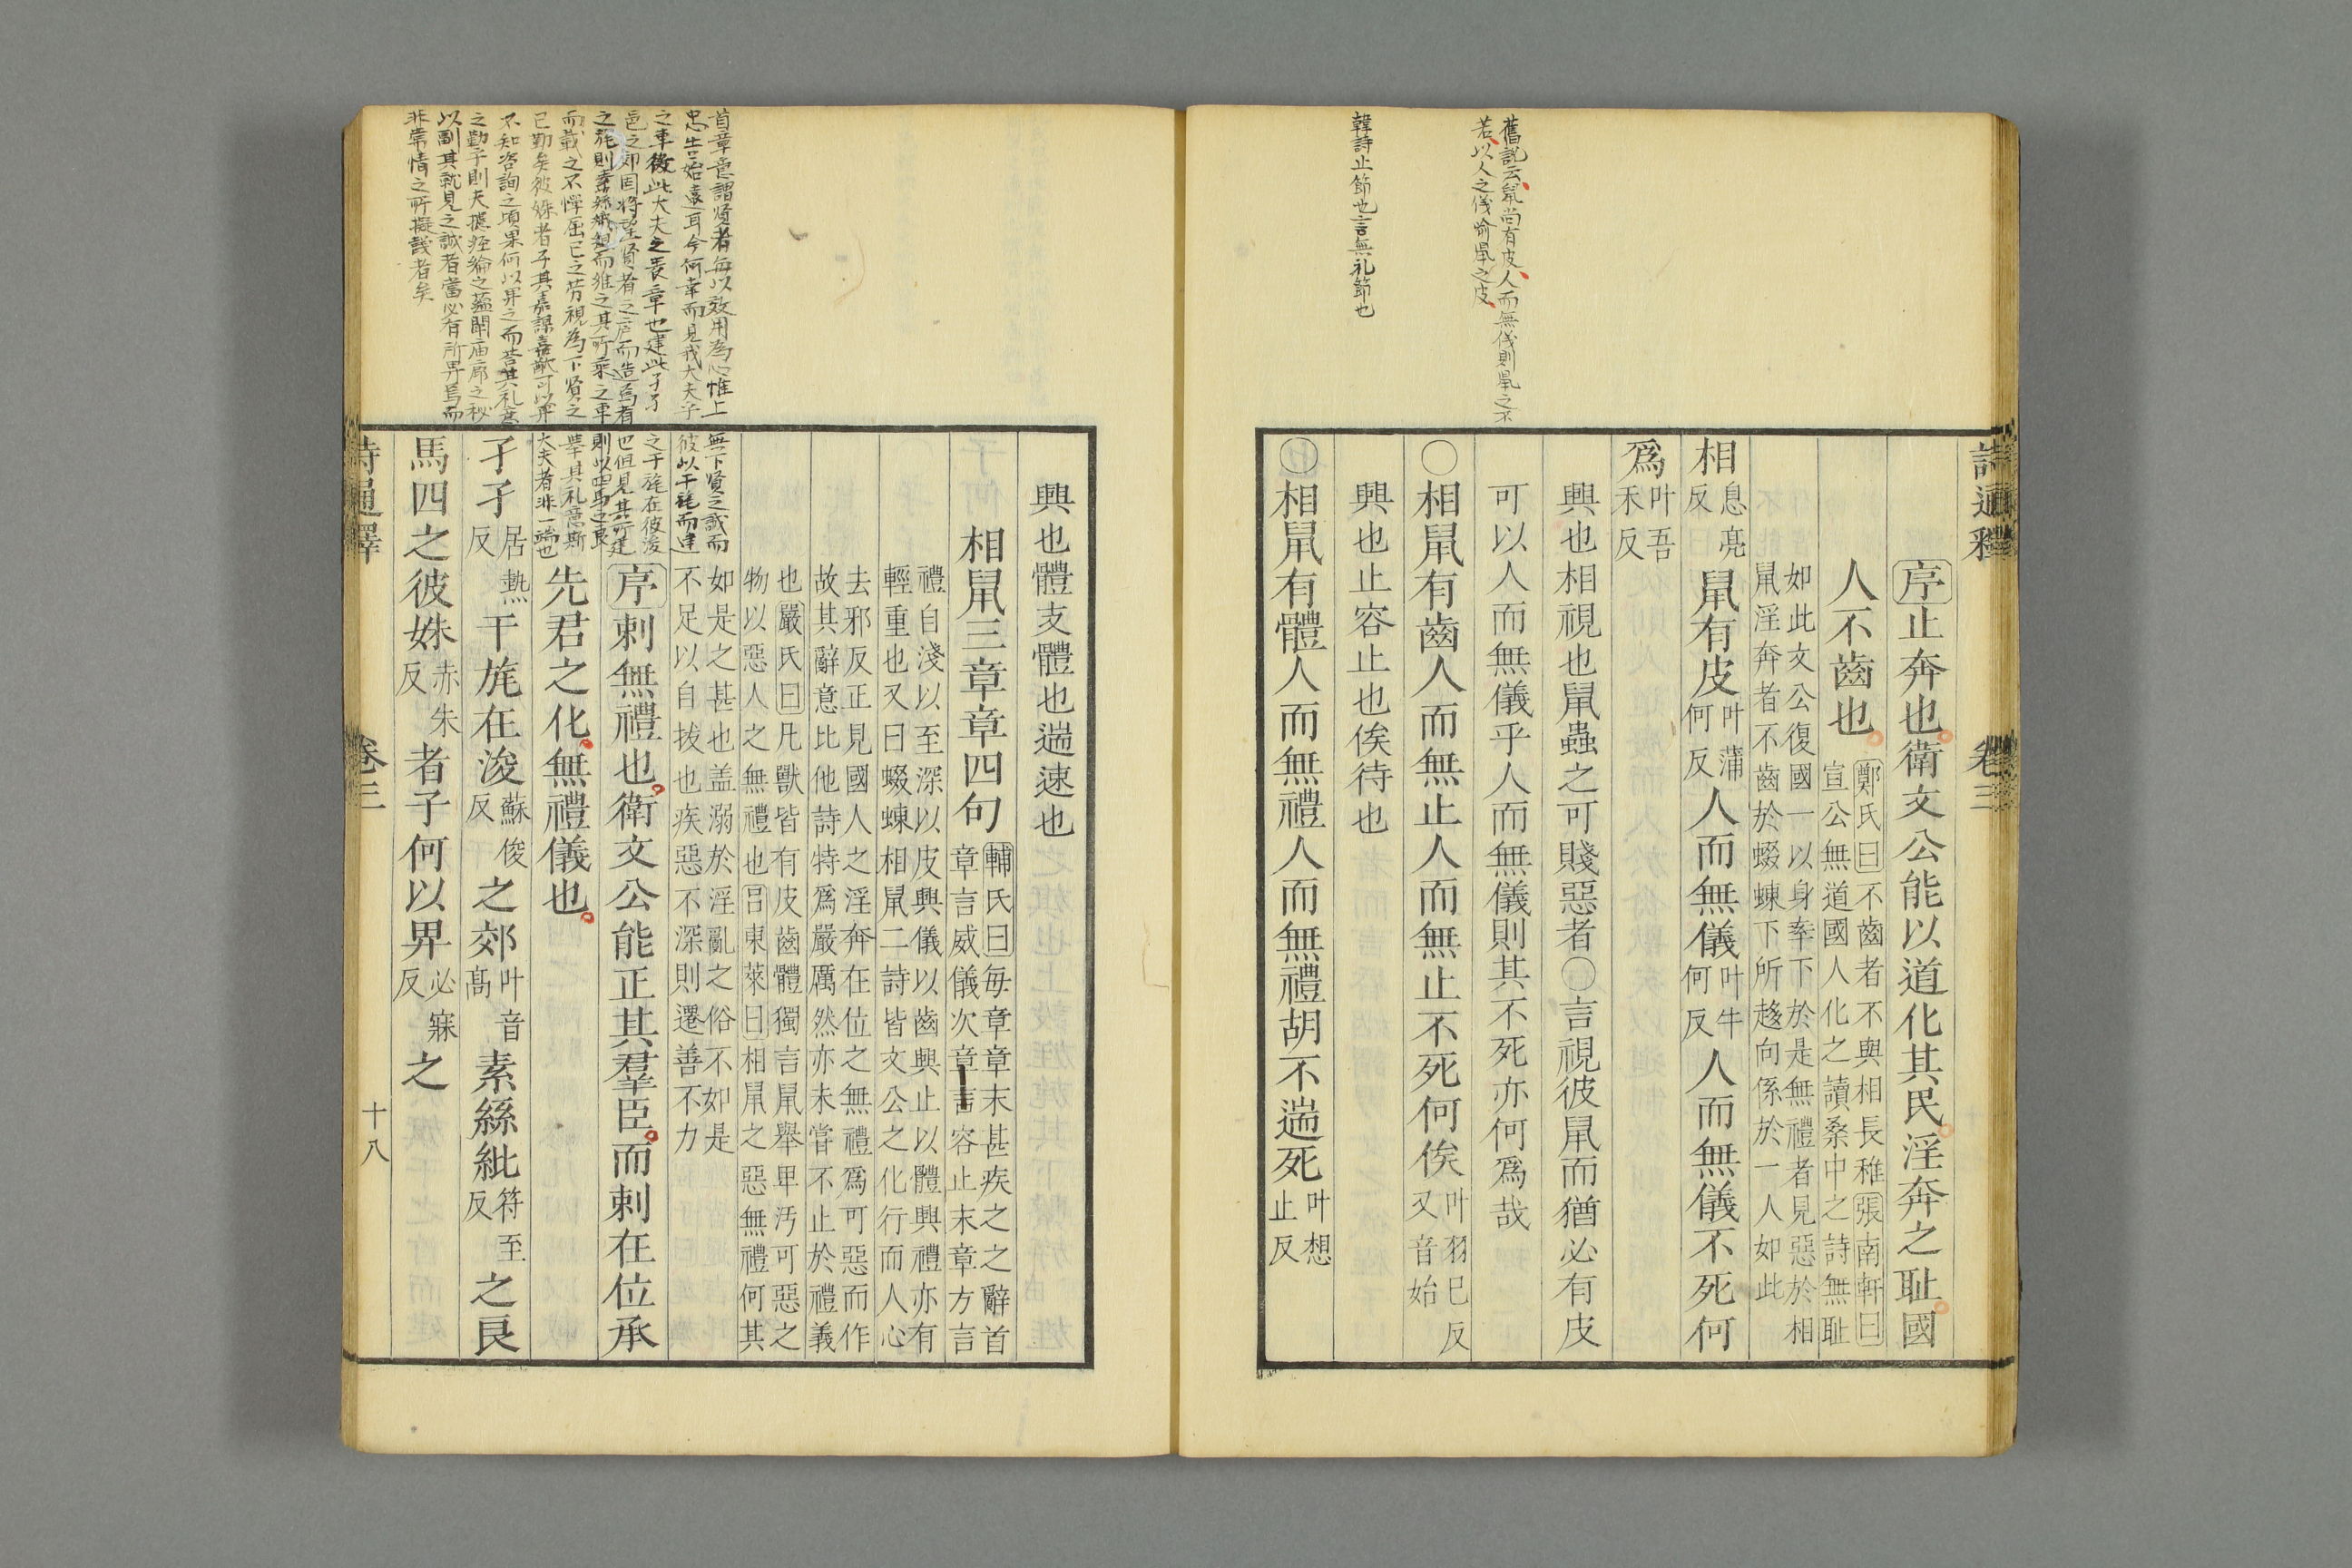 舊說云鼠尚有皮人而無儀則鼠之不
若以人之儀喻鼠之皮
韓詩止節也言無礼節也
詩通釋
卷三
序止奔也衛文公能以道化其民淫奔之恥國
人不齒也
鄭氏曰不齒者不與相長稚張南軒曰
宣公無道國人化之讀桑中之詩無恥
如此文公復國一以身率下於是無禮者見惡於相
鼠淫奔者不齒於蝃蝀下所趍向係於一人如此
相息亮反鼠有皮叶蒲何反人而無儀叶牛何反人而無儀不死何
爲叶吾禾反
興也相視也鼠蟲之可賤惡者○言視彼鼠而猶必有皮
可以人而無儀乎人而無儀則其不死亦何爲哉
○相鼠有齒人而無止人而無止不死何俟叶羽已反又音始
興也止容止也俟待也
○相鼠有體人而無禮人而無禮胡不遄死叶想止反
首章意謂賢者每以效用為心惟上
忠告始遠耳今何幸而見我大夫乎
之車後此大夫之長章也建此孑孑
而載之不憚屈己之劳視為下賢之
已勤矣彼姝者子其嘉謀嘉猷可以畀
不知咨詢之頃果何以畀之而荅其礼意
之勤乎則夫攄經綸之蘊闡庙廊之秘
以副其就見之誠者當必有所畀焉而
非常情之所擬議者矣
興也體支體也遄速也
相鼠三章章四句
輔氏曰每章章末甚疾之之辭首
章言威儀次章言容止末章方言
禮自淺以至深以皮興儀以齒興止以體興禮亦有
輕重也又曰蝃蝀相鼠二詩皆文公之化行而人心
去邪反正見國人之淫奔在位之無禮爲可惡而作
故其辭意比他詩特爲嚴厲然亦未嘗不止於禮義
也嚴氏曰凡獸皆有皮齒體獨言鼠舉卑汚可惡之
物以惡人之無禮也呂東萊曰相鼠之惡無禮何其
如是之甚也盖溺於淫亂之俗不如是
不足以自拔也疾惡不深則遷善不力
無下賢之誠而
彼以干旄而建
之干旄在彼浚
也但見其所建
則以四馬之良
舉其礼意斯
大夫者非一端也
序刺無禮也衛文公能正其羣臣而刺在位承
先君之化無禮儀也
孑孑居熱反干旄在浚蘇俊反之郊叶音高素絲紕符至反之良
馬四之彼姝赤朱反者子何以畀必寐反之
詩通釋
卷三
十八